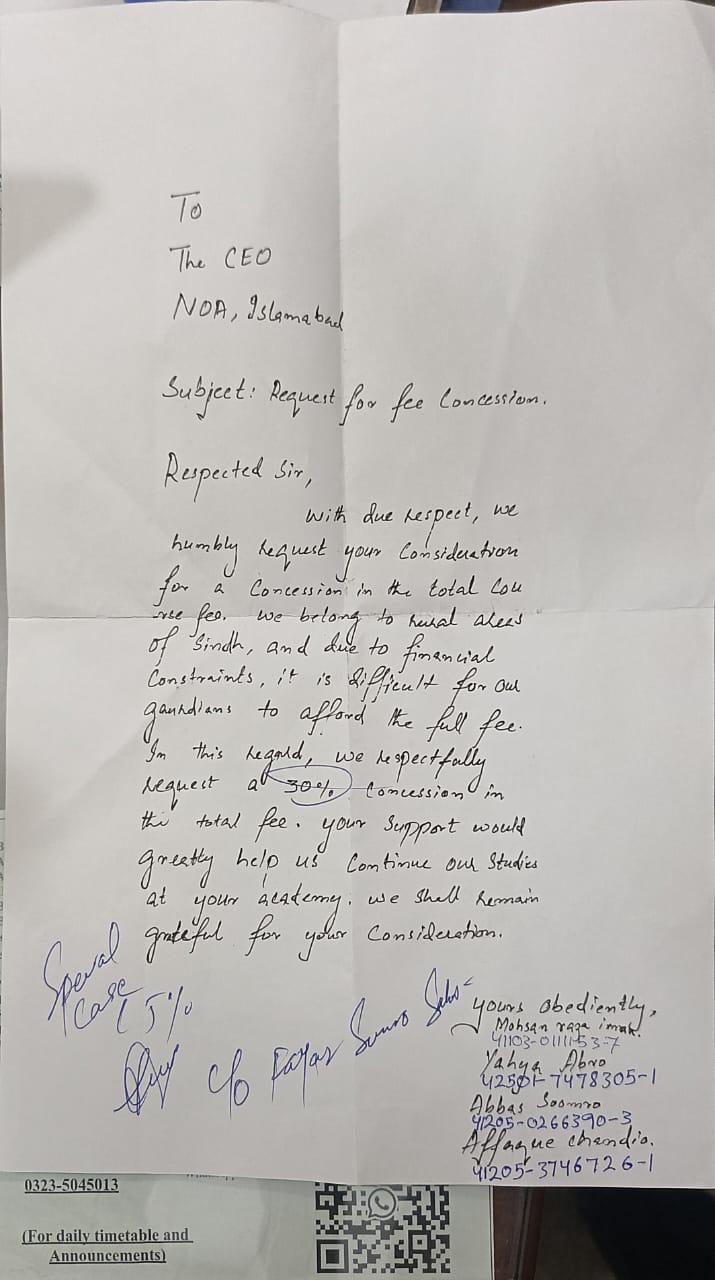 To
The CEO
NOA, Islamabad
Subject: Request for fee Concession.
Respected Sir,
With due respect, we
humbly request your Consideration
for a Concession in the total Cou
rse fee. we belong to rural areas
of Sindh, and due to financial
Constraints, it is difficult for our
gaurdians to afford the full fee.
In this regard, we respectfully
request a 30% Concession in
the total fee. your Support would
greatly help us Continue our Studies
at your academy. we shall remain
grateful for your Consideration.
Special
Case
15%
c/o Fayaz Sumro
yours obediently,
Mohsan raza
41103-0111153-7
Yahya Abro
42501-7478305-1
Abbas Soomro
41205-0266390-3
Affaque chandio.
41205-3746726-1
0323-5045013
(For daily timetable and
Announcements)